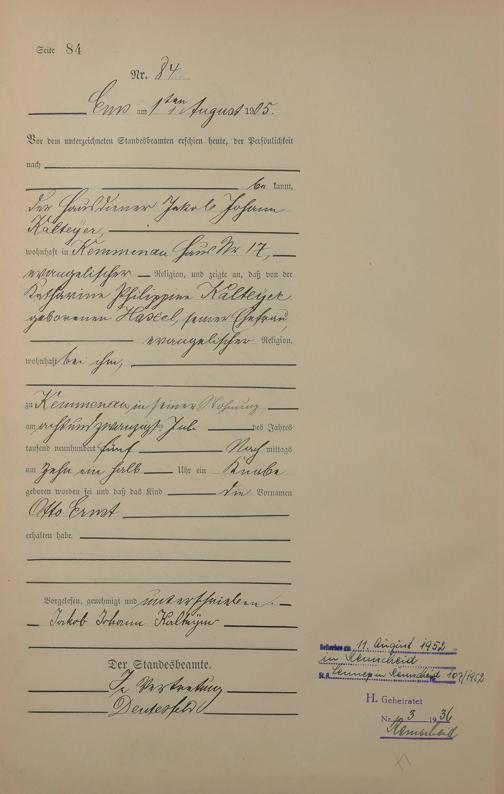 Seite 84
Nr. 84.
Ems am 1ten August 1905.
Vor dem unterzeichneten Standesbeamten erschien heute, der Persönlichkeit
nach
be kannt,
der Hausdiener Jakob Johann
Kalteyer,
wohnhaft in Kemmenau Haus Nr 17,
evangelischer Religion, und zeigte an, daß von der
Katharine Philippine Kalteyer
geborenen Hassel, seiner Ehefrau,
evangelischer Religion,
wohnhaft bei ihm,
zu Kemmenau in seiner Wohnung
am achtundzwanzigsten Juli des Jahres
tausend neunhundert fünf Nach mittags
um zehn ein halb Uhr ein Knabe
geboren worden sei und daß das Kind die Vornamen
Otto Ernst
erhalten habe.
Vorgelesen, genehmigt und unterschrieben.
Jakob Johann Kalteyer
Der Standesbeamte.
In Vertretung
11. August 1952
in Remscheid
St.A. Remscheid 1952
H. Geheiratet
Nr. 3 1936
Remscheid